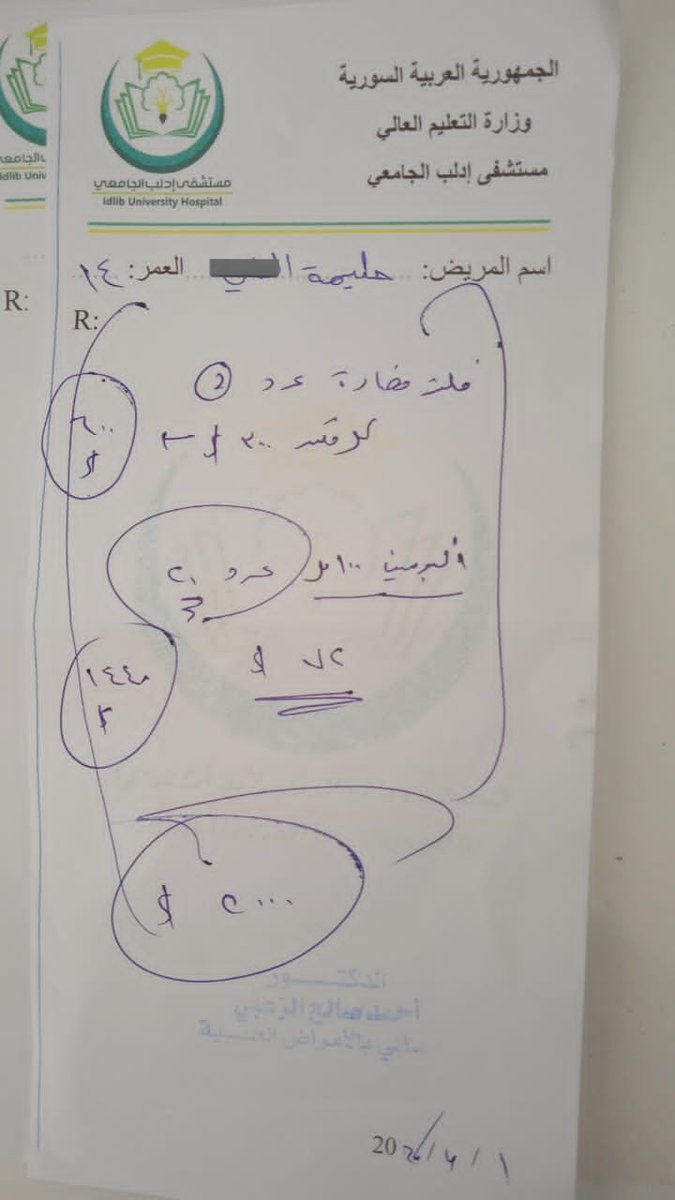 الجمهورية العربية السورية
وزارة التعليم العالي
مستشفى إدلب الجامعي
مستشفى إدلب الجامعي
Idlib University Hospital
اسم المريض: حليمة العمر: ١٤
R:
R:
فلتر مصادرة عدد ②
كل فلتر ٣٠٠ $
٦٠٠ $
ألبومين ١٠٠ مل عدد ٢٠
٧٢ $
١٤٤٠ $
٢٠٠٠ $
الدكتـــور
أحمد صالح الزعبي
بالأمراض العصبية